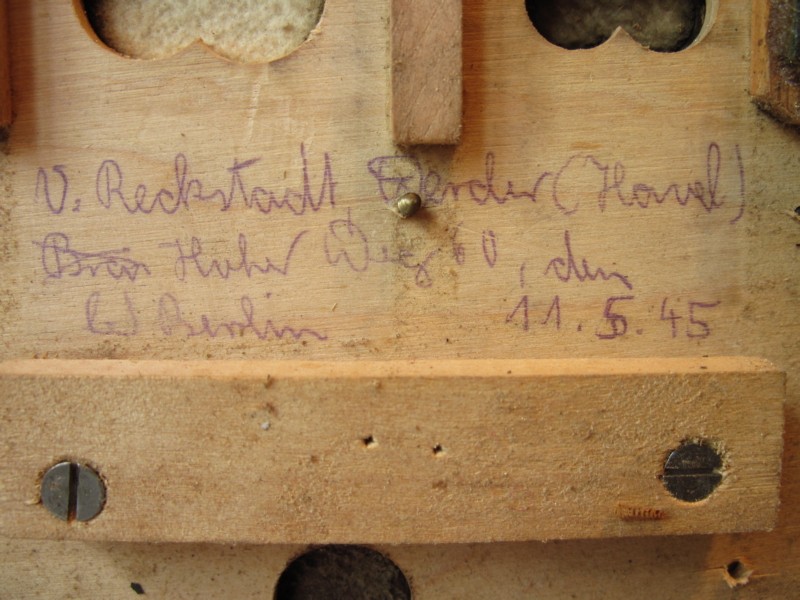 V. Reckstadt Werder (Havel)
Hoher Weg 60, den
b/ Berlin 11.5.45